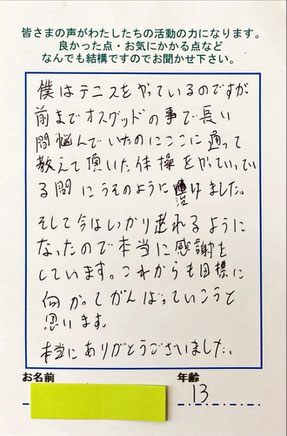 皆さまの声がわたしたちの活動の力になります。
良かった点・お気にかかる点など
なんでも結構ですのでお聞かせ下さい。
僕はテニスをやっているのですが
前までオスグッドの事で長い
間悩んでいたのにここに通って
教えて頂いた体操をやっていってい
る間にうそのように治りました。
そして今はしっかり走れるように
なったので本当に感謝を
しています。これからも目標に
向かってがんばっていこうと
思います。
本当にありがとうございました。
お名前
年齢
13